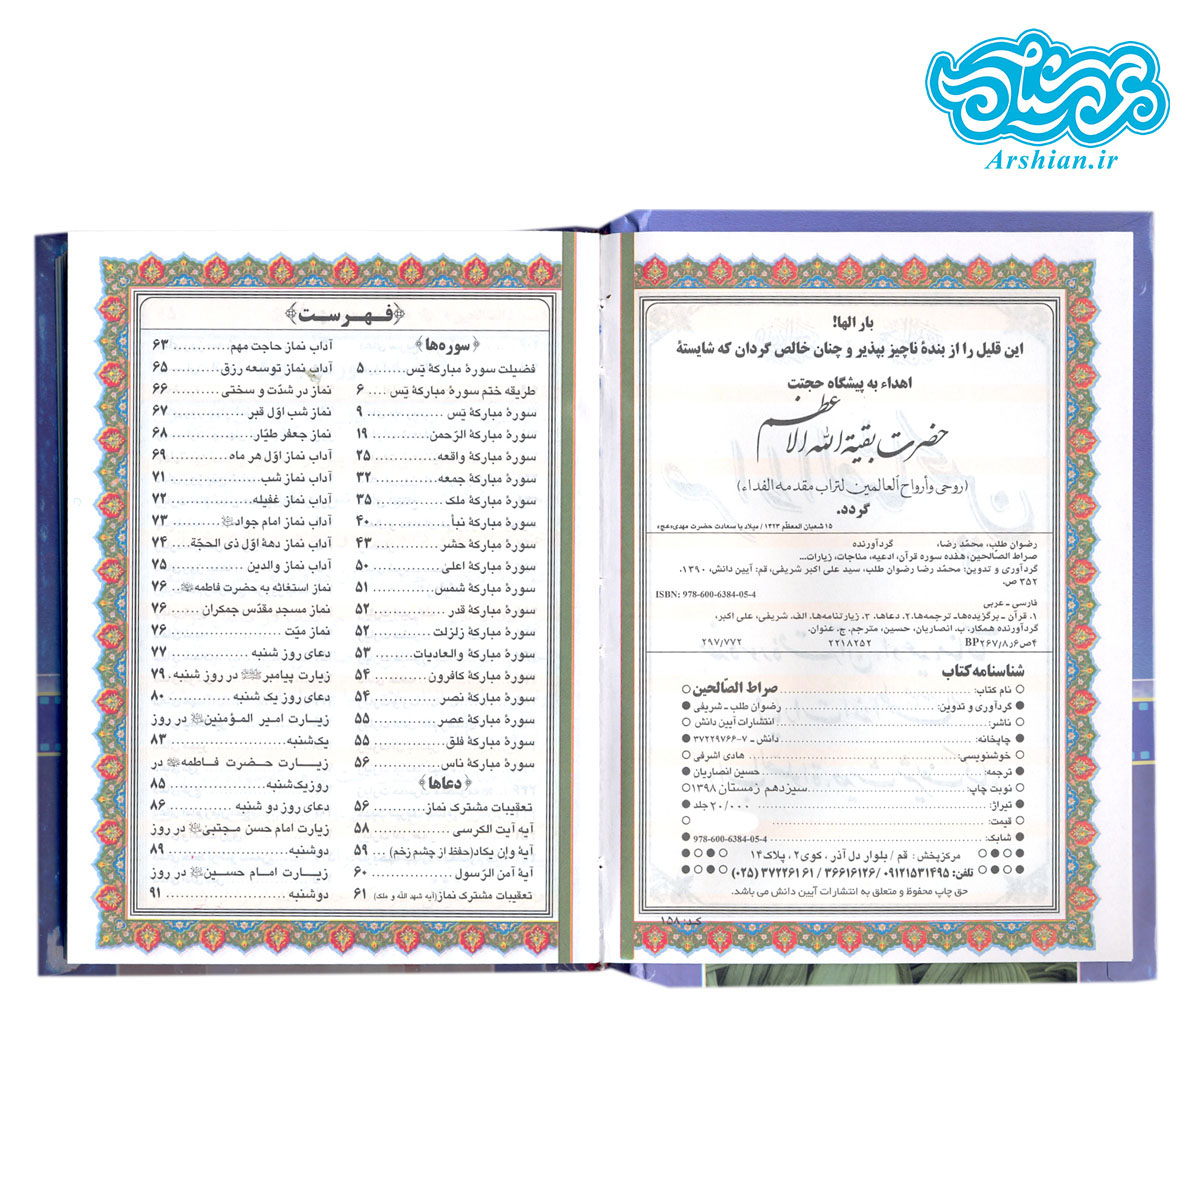 عرشیان
Arshian.ir
بار الها!
این قلیل را از بندهٔ ناچیز بپذیر و چنان خالص گردان که شایستهٔ
اهداء به پیشگاه حجتت
حضرت بقیة الله الاعظم
(روحی وأرواح العالمین لتراب مقدمه الفداء)
گردد.
۱۵ شعبان المعظّم ۱۴۲۳ / میلاد با سعادت حضرت مهدی«عج»
رضوان طلب، محمّد رضا، گردآورنده
صراط الصّالحین، هفده سوره قرآن، ادعیه، مناجات، زیارات...
گردآوری و تدوین: محمّد رضا رضوان طلب، سید علی اکبر شریفی، قم: آیین دانش، ۱۳۹۰.
۳۵۲ ص.
ISBN: 978-600-6384-05-4
فارسی ـ عربی
۱. قرآن ـ برگزیده‌هاـ ترجمه‌ها.۲. دعاها. ۳. زیارتنامه‌ها. الف. شریفی، علی اکبر،
گردآورنده همکار. ب. انصاریان، حسین، مترجم.ج. عنوان.
۴ص۶ر۸/BP۲۶۷ ۲۲۱۸۲۵۲ ۲۹۷/۷۷۲
شناسنامه کتاب
نام کتاب: صراط الصّالحین
گردآوری و تدوین: رضوان طلب ـ شریفی
ناشر: انتشارات آیین دانش
چاپخانه: دانش ـ ۷-۳۷۲۲۹۷۶۶
خوشنویسی: هادی اشرفی
ترجمه: حسین انصاریان
نوبت چاپ: سیزدهم زمستان ۱۳۹۸
تیراژ: ۲۰/۰۰۰ جلد
قیمت:
شابک: 978-600-6384-05-4
مرکزپخش: قم / بلوار دل آذر، کوی۲، پلاک۱۴
تلفن: ۰۹۱۲۱۵۳۱۴۹۵ / ۳۶۶۱۶۱۲۶ / ۳۷۲۲۶۱۶۱ (۰۲۵)
حق چاپ محفوظ و متعلق به انتشارات آیین دانش می باشد.
کد: ۱۵۸
فهرست
سوره‌ها
فضیلت سورهٔ مبارکهٔ یٰس........۵
طریقه ختم سورهٔ مبارکهٔ یٰس ....۶
سورهٔ مبارکهٔ یٰس ..............۹
سورهٔ مبارکهٔ الرّحمن............۱۹
سورهٔ مبارکهٔ واقعه..............۲۵
سورهٔ مبارکهٔ جمعه..............۳۲
سورهٔ مبارکهٔ ملک..............۳۵
سورهٔ مبارکهٔ نبأ................۴۰
سورهٔ مبارکهٔ حشر..............۴۳
سورهٔ مبارکهٔ اعلیٰ..............۵۰
سورهٔ مبارکهٔ شمس............۵۱
سورهٔ مبارکهٔ قدر..............۵۲
سورهٔ مبارکهٔ زلزلت............۵۲
سورهٔ مبارکهٔ والعادیات........۵۳
سورهٔ مبارکهٔ کافرون...........۵۴
سورهٔ مبارکهٔ نصر..............۵۴
سورهٔ مبارکهٔ عصر..............۵۵
سورهٔ مبارکهٔ فلق..............۵۵
سورهٔ مبارکهٔ ناس..............۵۶
دعاها
تعقیبات مشترک نماز............۵۶
آیه آیت الکرسی................۵۸
آیهٔ وإن یکاد(حفظ از چشم زخم) ...۵۹
آیهٔ آمن الرّسول................۶۰
تعقیبات مشترک نماز(آیه شهد الله و ملک) ۶۱
آداب نماز حاجت مهم...........۶۳
آداب نماز توسعه رزق...........۶۵
نماز در شدّت و سختی...........۶۶
نماز شب اوّل قبر...............۶۷
نماز جعفر طیّار.................۶۸
آداب نماز اوّل هر ماه...........۶۹
آداب نماز شب.................۷۱
آداب نماز غفیله................۷۲
آداب نماز امام جواد............۷۳
آداب نماز دههٔ اوّل ذی الحجّة....۷۴
آداب نماز والدین...............۷۵
نماز استغاثه به حضرت فاطمه..۷۶
نماز مسجد مقدّس جمکران ......۷۶
نماز میّت......................۷۶
دعای روز شنبه.................۷۷
زیارت پیامبر در روز شنبه.۷۹
دعای روز یک شنبه.............۸۰
زیارت امیر المؤمنین در روز
یک‌شنبه......................۸۳
زیارت حضرت فاطمه در
روزیک‌شنبه...................۸۵
دعای روز دو شنبه..............۸۶
زیارت امام حسن مجتبی در روز
دوشنبه.......................۸۹
زیارت امام حسین در روز
دوشنبه.......................۹۱